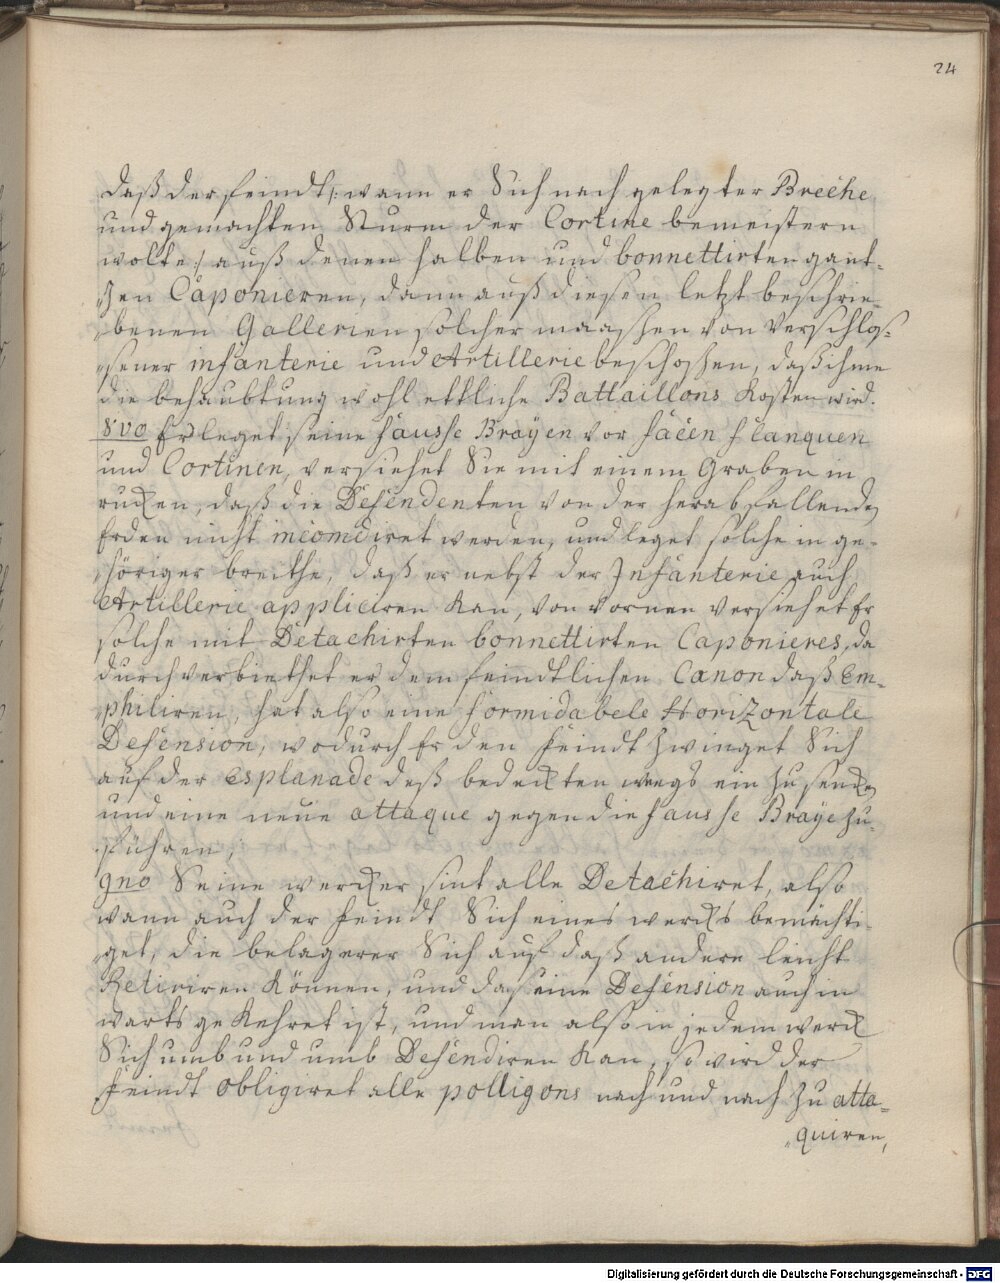 24
daß der feindt /: wann er Sich nach gelegter Breche
und gemachten Sturm der Cortine bemeistern
wolte :/ auß denen halben und bonnettirten gant-
zen Caponieren, dann auß diesen letzt beschrie-
benen Gallerien solcher maaßen von verschlos-
sener infanterie und Artillerie beschoßen, daß ihme
die behaubtung wohl ettliche Battaillons Kosten wird.
8vo Er leget seine fausse Brayen vor facen flanquen
und Cortinen, versiehet Sie mit einem Graben in
rucken, daß die Defendenten von der herabfallenden
Erden nicht incomdiret werden, und leget solche in ge-
höriger breithe, daß er nebst der Infanterie auch
Artillerie appliciren Kan, von vornen versiehet Er
solche mit Detachirten bonnettirten Caponieres, da
durch verbiethet er dem feindtlichen Canon daß Em-
philiren, hat also eine formidabele Horizontale
Defension, wodurch Er den feindt zwinget Sich
auf der Esplanade deß bedeckten wegs ein zu sencken
und eine neue attaque gegen die fausse Braye zu-
führen,
9no Seine wercker sint alle Detachiret, also
wann auch der feindt Sich eines wercks bemächti-
get, die belagerer Sich auf daß andere leicht
Retiriren Können, und da seine Defension auch in
warts gekehret ist, und man also in jedem werck
Sich umb und umb Defendiren Kan, so wird der
feindt obligiret alle polligons nach und nach zu atta-
quiren,
Digitalisierung gefördert durch die Deutsche Forschungsgemeinschaft - DFG